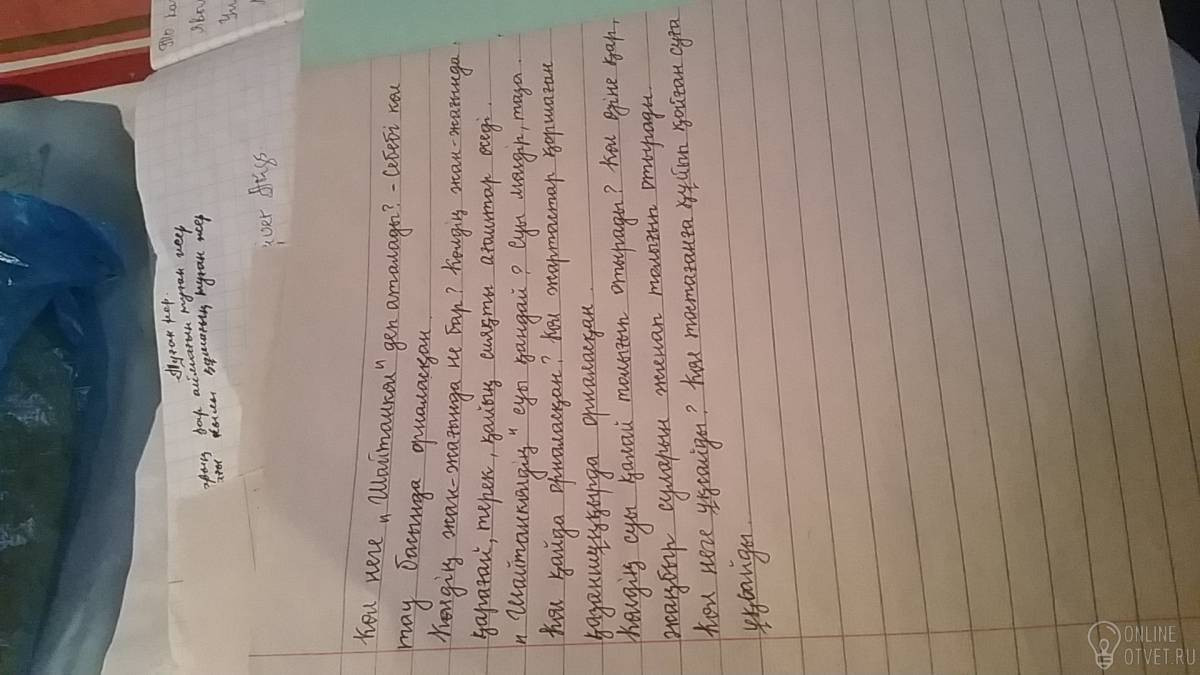 Көл неге "Шайтанкөл" деп аталады? - Себебі көл
тау басында орналасқан.
Көлдің жан-жағында не бар? Көлдің жан-жағында
қарағай, терек, қайың сияқты ағаштар өседі.
"Шайтанкөлдің" суы қандай? Суы мөлдір, таза.
Көл қайда орналасқан? Көл жартастар қоршаған
қазаншұңқырда орналасқан.
Көлдің суы қалай толығып отырады? Көл өзіне қар,
жаңбыр суларын жинап толығып отырады.
Көл неге ұқсайды? Көл тостағанға құйып қойған суға
ұқсайды.
Туған жер.
бар аймағын туған жер
туған жер
ONLINE
OTVET.RU